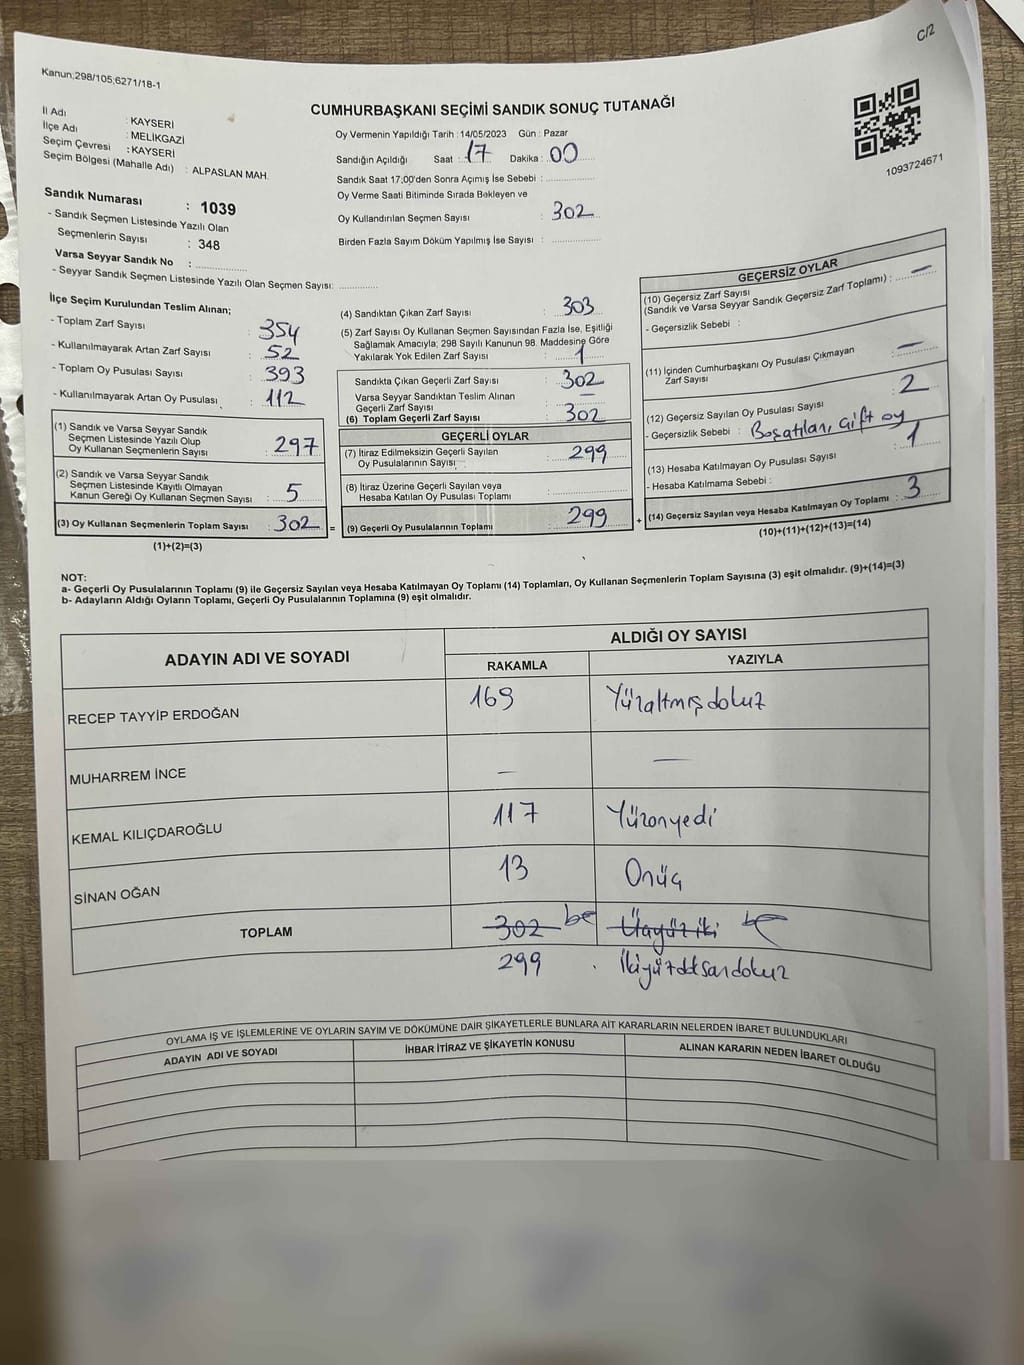 C/2
Kanun;298/105;6271/18-1
CUMHURBAŞKANI SEÇİMİ SANDIK SONUÇ TUTANAĞI
İl Adı : KAYSERİ
İlçe Adı : MELİKGAZİ
Seçim Çevresi : KAYSERİ
Seçim Bölgesi (Mahalle Adı) : ALPASLAN MAH.
Sandık Numarası : 1039
- Sandık Seçmen Listesinde Yazılı Olan
Seçmenlerin Sayısı : 348
Varsa Seyyar Sandık No :
- Seyyar Sandık Seçmen Listesinde Yazılı Olan Seçmen Sayısı:
Oy Vermenin Yapıldığı Tarih : 14/05/2023 Gün : Pazar
Sandığın Açıldığı Saat : 17 Dakika : 00
Sandık Saat 17:00'den Sonra Açımış İse Sebebi :
Oy Verme Saati Bitiminde Sırada Bekleyen ve
Oy Kullandırılan Seçmen Sayısı : 302
Birden Fazla Sayım Döküm Yapılmış İse Sayısı :
1093724671
İlçe Seçim Kurulundan Teslim Alınan;
- Toplam Zarf Sayısı : 354
- Kullanılmayarak Artan Zarf Sayısı : 52
- Toplam Oy Pusulası Sayısı : 393
- Kullanılmayarak Artan Oy Pusulası : 112
(1) Sandık ve Varsa Seyyar Sandık
Seçmen Listesinde Yazılı Olup
Oy Kullanan Seçmenlerin Sayısı : 297
(2) Sandık ve Varsa Seyyar Sandık
Seçmen Listesinde Kayıtlı Olmayan
Kanun Gereği Oy Kullanan Seçmen Sayısı : 5
(3) Oy Kullanan Seçmenlerin Toplam Sayısı : 302 =
(1)+(2)=(3)
(4) Sandıktan Çıkan Zarf Sayısı : 303
(5) Zarf Sayısı Oy Kullanan Seçmen Sayısından Fazla İse, Eşitliği
Sağlamak Amacıyla; 298 Sayılı Kanunun 98. Maddesine Göre
Yakılarak Yok Edilen Zarf Sayısı : 1
Sandıkta Çıkan Geçerli Zarf Sayısı : 302
Varsa Seyyar Sandıktan Teslim Alınan
Geçerli Zarf Sayısı : —
(6) Toplam Geçerli Zarf Sayısı : 302
GEÇERLİ OYLAR
(7) İtiraz Edilmeksizin Geçerli Sayılan
Oy Pusulalarının Sayısı : 299
(8) İtiraz Üzerine Geçerli Sayılan veya
Hesaba Katılan Oy Pusulası Toplamı :
(9) Geçerli Oy Pusulalarının Toplamı : 299 +
GEÇERSİZ OYLAR
(10) Geçersiz Zarf Sayısı
(Sandık ve Varsa Seyyar Sandık Geçersiz Zarf Toplamı) : —
- Geçersizlik Sebebi :
(11) İçinden Cumhurbaşkanı Oy Pusulası Çıkmayan
Zarf Sayısı : —
(12) Geçersiz Sayılan Oy Pusulası Sayısı : 2
- Geçersizlik Sebebi : Boşatılan, çift oy
(13) Hesaba Katılmayan Oy Pusulası Sayısı : 1
- Hesaba Katılmama Sebebi :
(14) Geçersiz Sayılan veya Hesaba Katılmayan Oy Toplamı : 3
(10)+(11)+(12)+(13)=(14)
NOT:
a- Geçerli Oy Pusulalarının Toplamı (9) ile Geçersiz Sayılan veya Hesaba Katılmayan Oy Toplamı (14) Toplamları, Oy Kullanan Seçmenlerin Toplam Sayısına (3) eşit olmalıdır. (9)+(14)=(3)
b- Adayların Aldığı Oyların Toplamı, Geçerli Oy Pusulalarının Toplamına (9) eşit olmalıdır.
ADAYIN ADI VE SOYADI ALDIĞI OY SAYISI
RAKAMLA YAZIYLA
RECEP TAYYİP ERDOĞAN 169 Yüzaltmışdokuz
MUHARREM İNCE — —
KEMAL KILIÇDAROĞLU 117 Yüzonyedi
SİNAN OĞAN 13 Onüç
TOPLAM 302 Üçyüziki
299 İkiyüzdoksandokuz
OYLAMA İŞ VE İŞLEMLERİNE VE OYLARIN SAYIM VE DÖKÜMÜNE DAİR ŞİKAYETLERLE BUNLARA AİT KARARLARIN NELERDEN İBARET BULUNDUKLARI
ADAYIN ADI VE SOYADI İHBAR İTİRAZ VE ŞİKAYETİN KONUSU ALINAN KARARIN NEDEN İBARET OLDUĞU